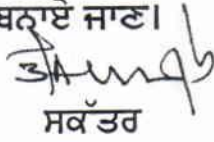 ਬਨਾਏ ਜਾਣ।
ਸਕੱਤਰ